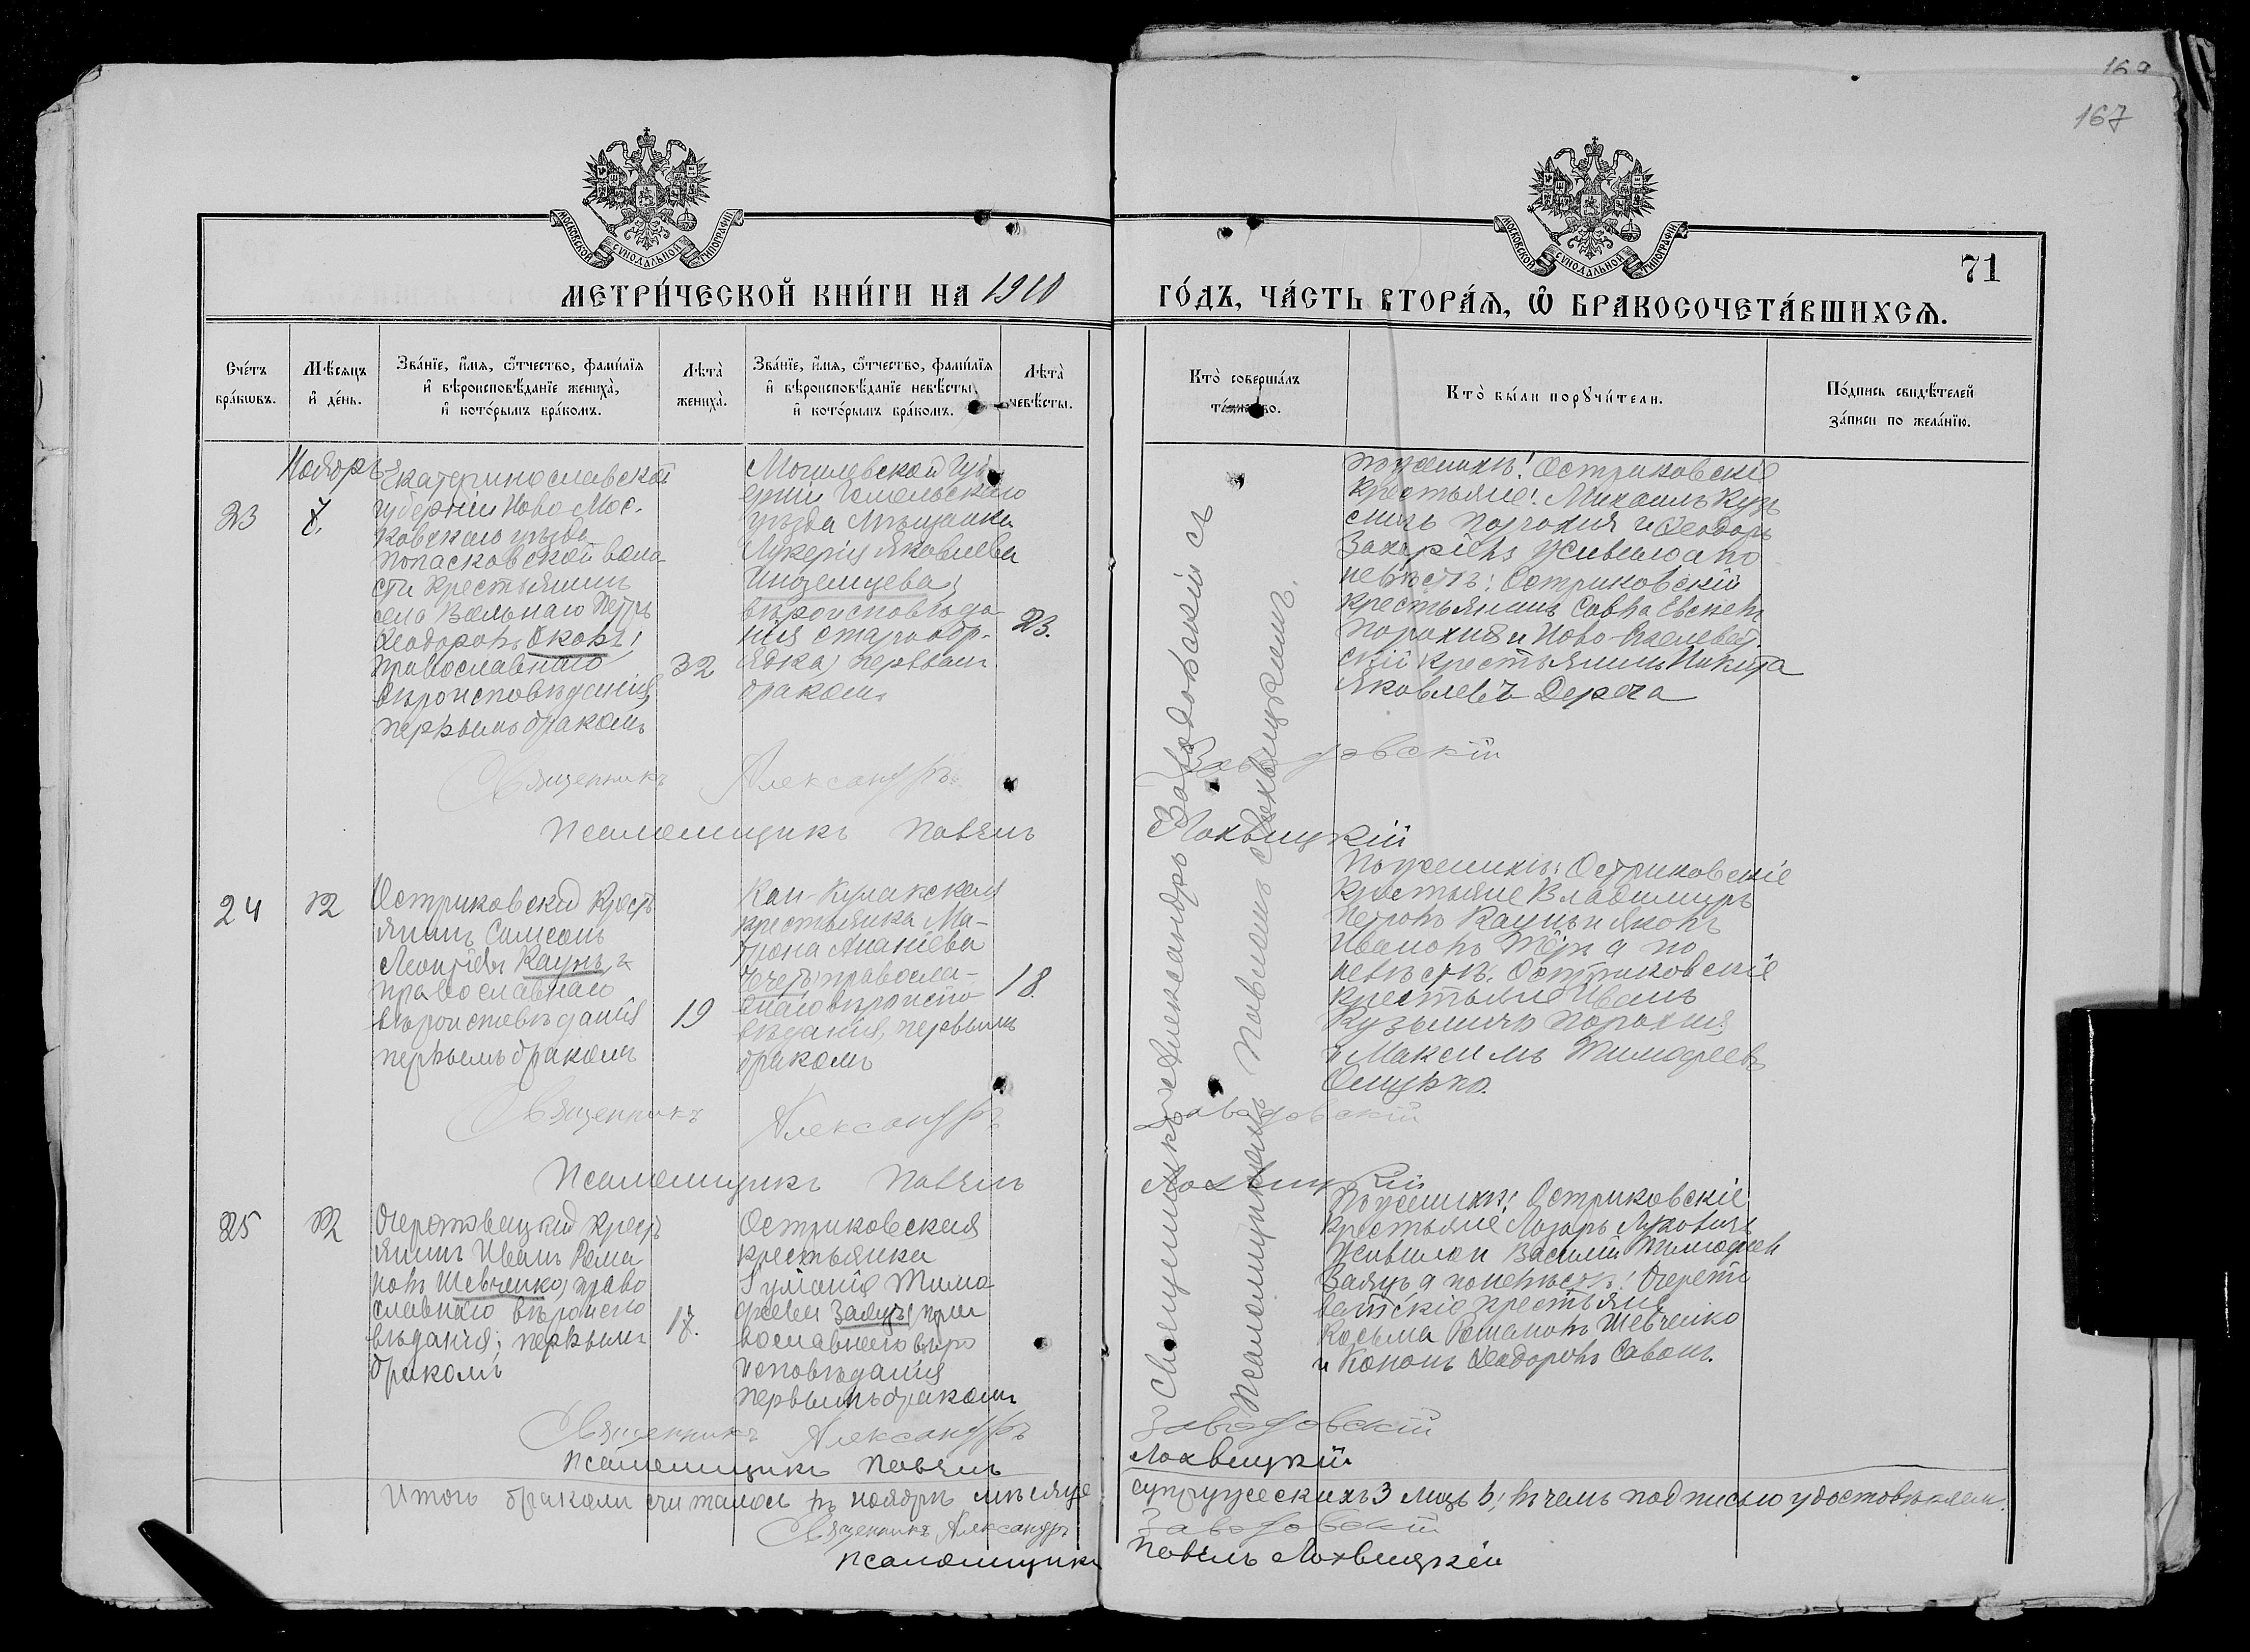 169
167
МОСКОВСКОЙ СѴНОДАЛЬНОЙ ТИПОГРАФІИ
МОСКОВСКОЙ СѴНОДАЛЬНОЙ ТИПОГРАФІИ
71
МЕТРИ́ЧЕСКОЙ КНИ́ГИ НА 1910
ГО́ДЪ, ЧА́СТЬ ВТОРА́Ѧ, Ѽ БРАКОСОЧЕТА́ВШИХСѦ.
Сче́тъ
бра́кѡвъ.
Мѣ́сѧцъ
и҆ де́нь.
Зва́нїе, и҆́мѧ, ѻ҆́тчество, фами́лїѧ
и҆ вѣроисповѣ́данїе жениха̀,
и҆ кото́рымъ бра́комъ.
Лѣ́та̀
жениха̀.
Зва́нїе, и҆́мѧ, ѻ҆́тчество, фами́лїѧ
и҆ вѣроисповѣ́данїе невѣ́сты,
и҆ кото́рымъ бра́комъ.
Лѣ́та̀
невѣ́сты.
Кто̀ соверша́лъ
та́инство.
Кто̀ бы́ли порꙋчи́тели.
По́дпись свидѣ́телей
за́писи по жела́нїю.
Ноябрь
23
7.
Екатеринославской
губерніи Ново Мос-
ковскаго уѣзда
Попасковской воло
сти Крестьянинъ
села Вольнаго Петръ
Ѳеодоровъ Оковъ;
православнаго
вѣроисповѣданія
первымъ бракомъ
32
Могилевской Губ
ерніи Гомельскаго
уѣзда Мѣщанка
Лукерія Яковлева
Иноземцева;
вѣроисповѣда
нія старообр-
ядка, первымъ
бракомъ
23.
По женихѣ: Остриковскіе
крестьяне: Михаилъ Кузь
мичъ Порохня и Ѳеодоръ
Захаріевъ Живило а по
невѣстѣ: Остриковскій
крестьянинъ Савва Евсиев
Порохня и Ново-
скій крестьянинъ Никита
Яковлевъ Дереча
Священникъ Александръ Заводовскій
Псаломщикъ Павелъ Лохвицкій
24
12
Остриковскій Крестъ
янинъ Самсонъ
Леонтіевъ Каунъ,
православнаго
вѣроисповѣданія
первымъ бракомъ
19
Кон-Кулакская
крестьянка Ма-
трона Ананіева
православ-
наго вѣроиспо
вѣданія, первымъ
бракомъ
18.
По женихѣ: Остриковскіе
крестьяне Владимиръ
Петровъ Каунъ и Яковъ
Ивановъ а по
невѣстѣ: Остриковскіе
крестьяне Иванъ
Кузьмичъ Порохня
и Максимъ Тимофеевъ
Онищенко.
Священникъ Александръ Заводовскій
Псаломщикъ Павелъ Лохвицкій
25
12
Очеретоватскій Крестъ
янинъ Иванъ Рома
новъ Шевченко, право
славнаго вѣроиспо
вѣданія; первымъ
бракомъ
18.
Остриковская
крестьянка
Іуліанія Тимо
феева Заяцъ, пра
вославнаго вѣро
исповѣданія
первымъ бракомъ
По женихѣ: Остриковскіе
крестьяне Лазарь Луковичъ
Живило и Василій Тимофеев
Заяцъ а по невѣстѣ: Очерето
ватскіе крестьяне
Косьма Романовъ Шевченко
и Кононъ Ѳеодоровъ Савон.
Священникъ Александръ Заводовскій
Псаломщикъ Павелъ Лохвицкій
Священникъ Александръ Заводовскій съ
Псаломщикомъ Павломъ Лохвицкимъ.
Итого браковъ считалось въ ноябрѣ мѣсяцѣ супружескихъ 3 лицъ 6; въ чемъ подписью удостовѣряемъ.
Священникъ Александръ Заводовскій
Псаломщикъ Павелъ Лохвицкій